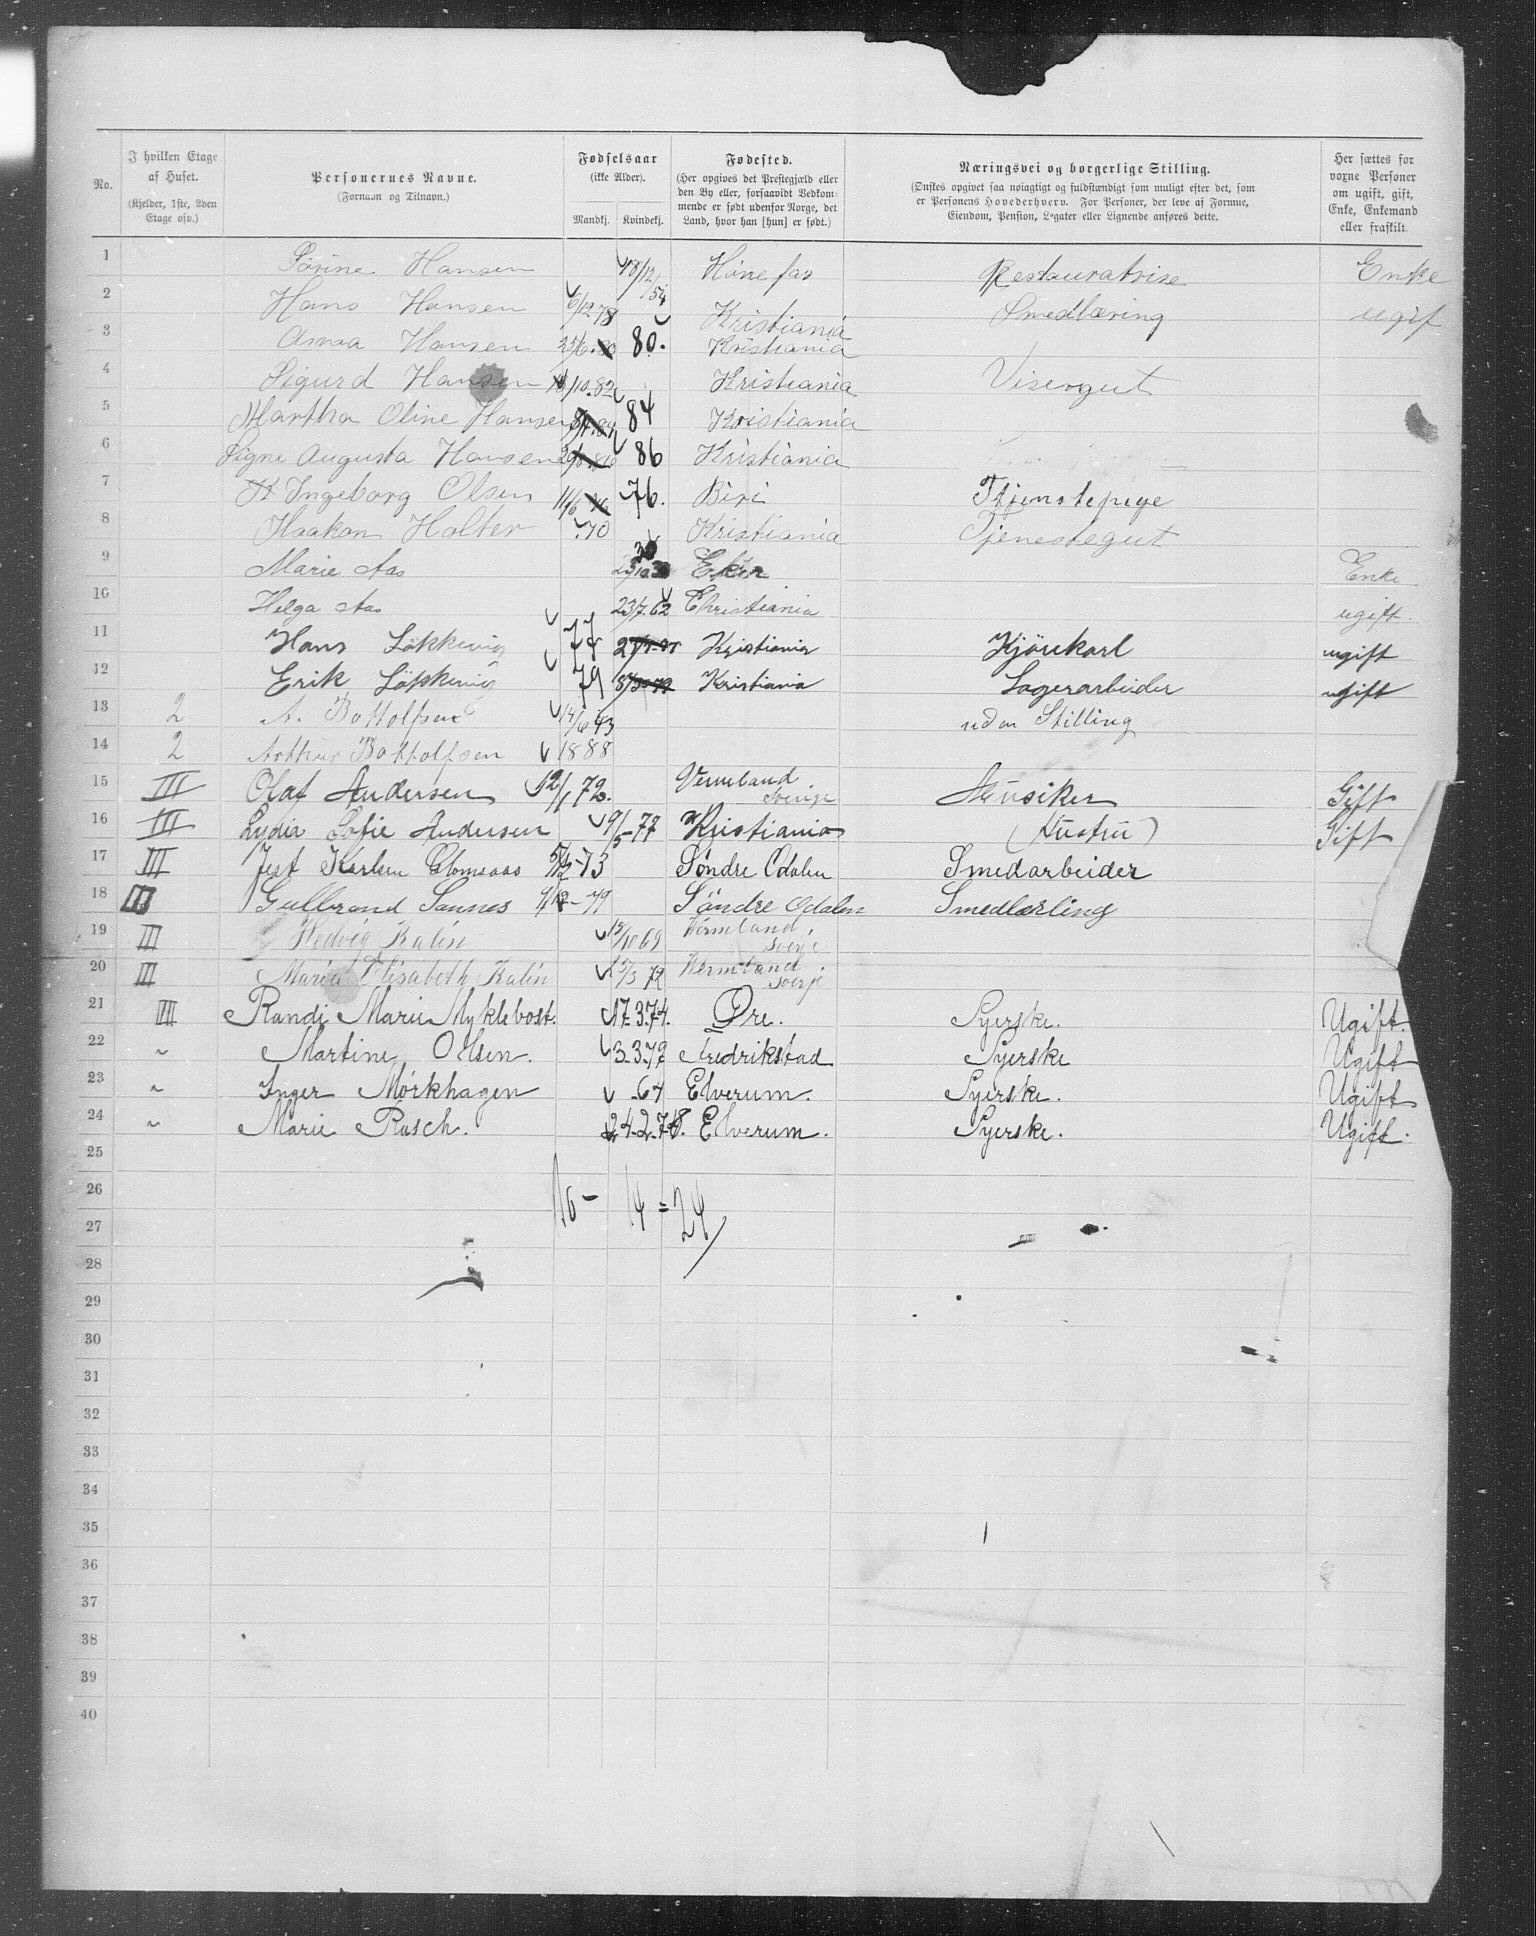 No.
I hvilken Etage af Huset. (Kjelder, 1ste, 2den Etage osv.)
Personernes Navne. (Fornavn og Tilnavn.)
Fødselsaar (ikke Alder). Mandkj. Kvindekj.
Fødested. (Her opgives det Prestegjæld eller den By eller, forsaavidt Vedkommende er født udenfor Norge, det Land, hvor han [hun] er født.)
Næringsvei og borgerlige Stilling. (Ønskes opgivet saa nøiagtigt og fuldstændigt som muligt efter det, som er Personens Hovederhverv. For Personer, der leve af Formue, Eiendom, Pension, Legater eller Lignende anføres dette.
Her sættes for voxne Personer om ugift, gift, Enke, Enkemand eller fraskilt.
1 Sörine Hansen 18/12/54 Hönefos Restauratrise Enke
2 Hans Hansen 6/12 78 Kristiania Smedlæring ugif
3 Anna Hansen 80. Kristiania
4 Sigurd Hansen /10.82 Kristiania Visergut
5 Martha Oline Hansen 84 Kristiania
6 Signe Augusta Hansen 86 Kristiania
7 Ingeborg Olsen 11/6 76. Biri Tjenstepige
8 Haakon Holter 70 Kristiania Tjenestegut
9 Marie Aas 30 Eker Enke
10 Helga Aas 23/7.62 Christiania ugift.
11 Hans Lökkevig 77 Kristiania Kjörekarl ugift
12 Erik Lökkevig 79 Kristiania Lagerarbeider ugift
13 2 A. Bottolfsen 14/6 43 uden Stilling
14 2 Arthur Bottolfsen 1888
15 III Olaf Andersen 12/1 72. Vermland Sverige Musiker Gift
16 III Lydia Sofie Andersen 9/5-77 Kristiania (Hustru) Gift
17 III Karlsen Glomsaas 73 Söndre Odalen Smedarbeider
18 III Gulbrand Sannes 4/12-79 Söndre Odalen Smedlærling
19 III Hedvig Kalin 69 Vermland Sverje
20 III Maria Elisabeth Kalin 25/3 72 Vermland Sverje
21 III Randi Marie Myklebost. 17-3.74. Øre. Syerske. Ugift.
22 ~ Martine Olsen. 3-3.72 Fredrikstad Syerske Ugift
23 ~ Inger Mörkhagen -64 Elverum. Syerske. Ugift
24 ~ Marie Rusch. 24-2-78. Elverum. Syerske. Ugift.
25
26
10 - 14 = 24
27
28
29
30
31
32
33
34
35
36
37
38
39
40